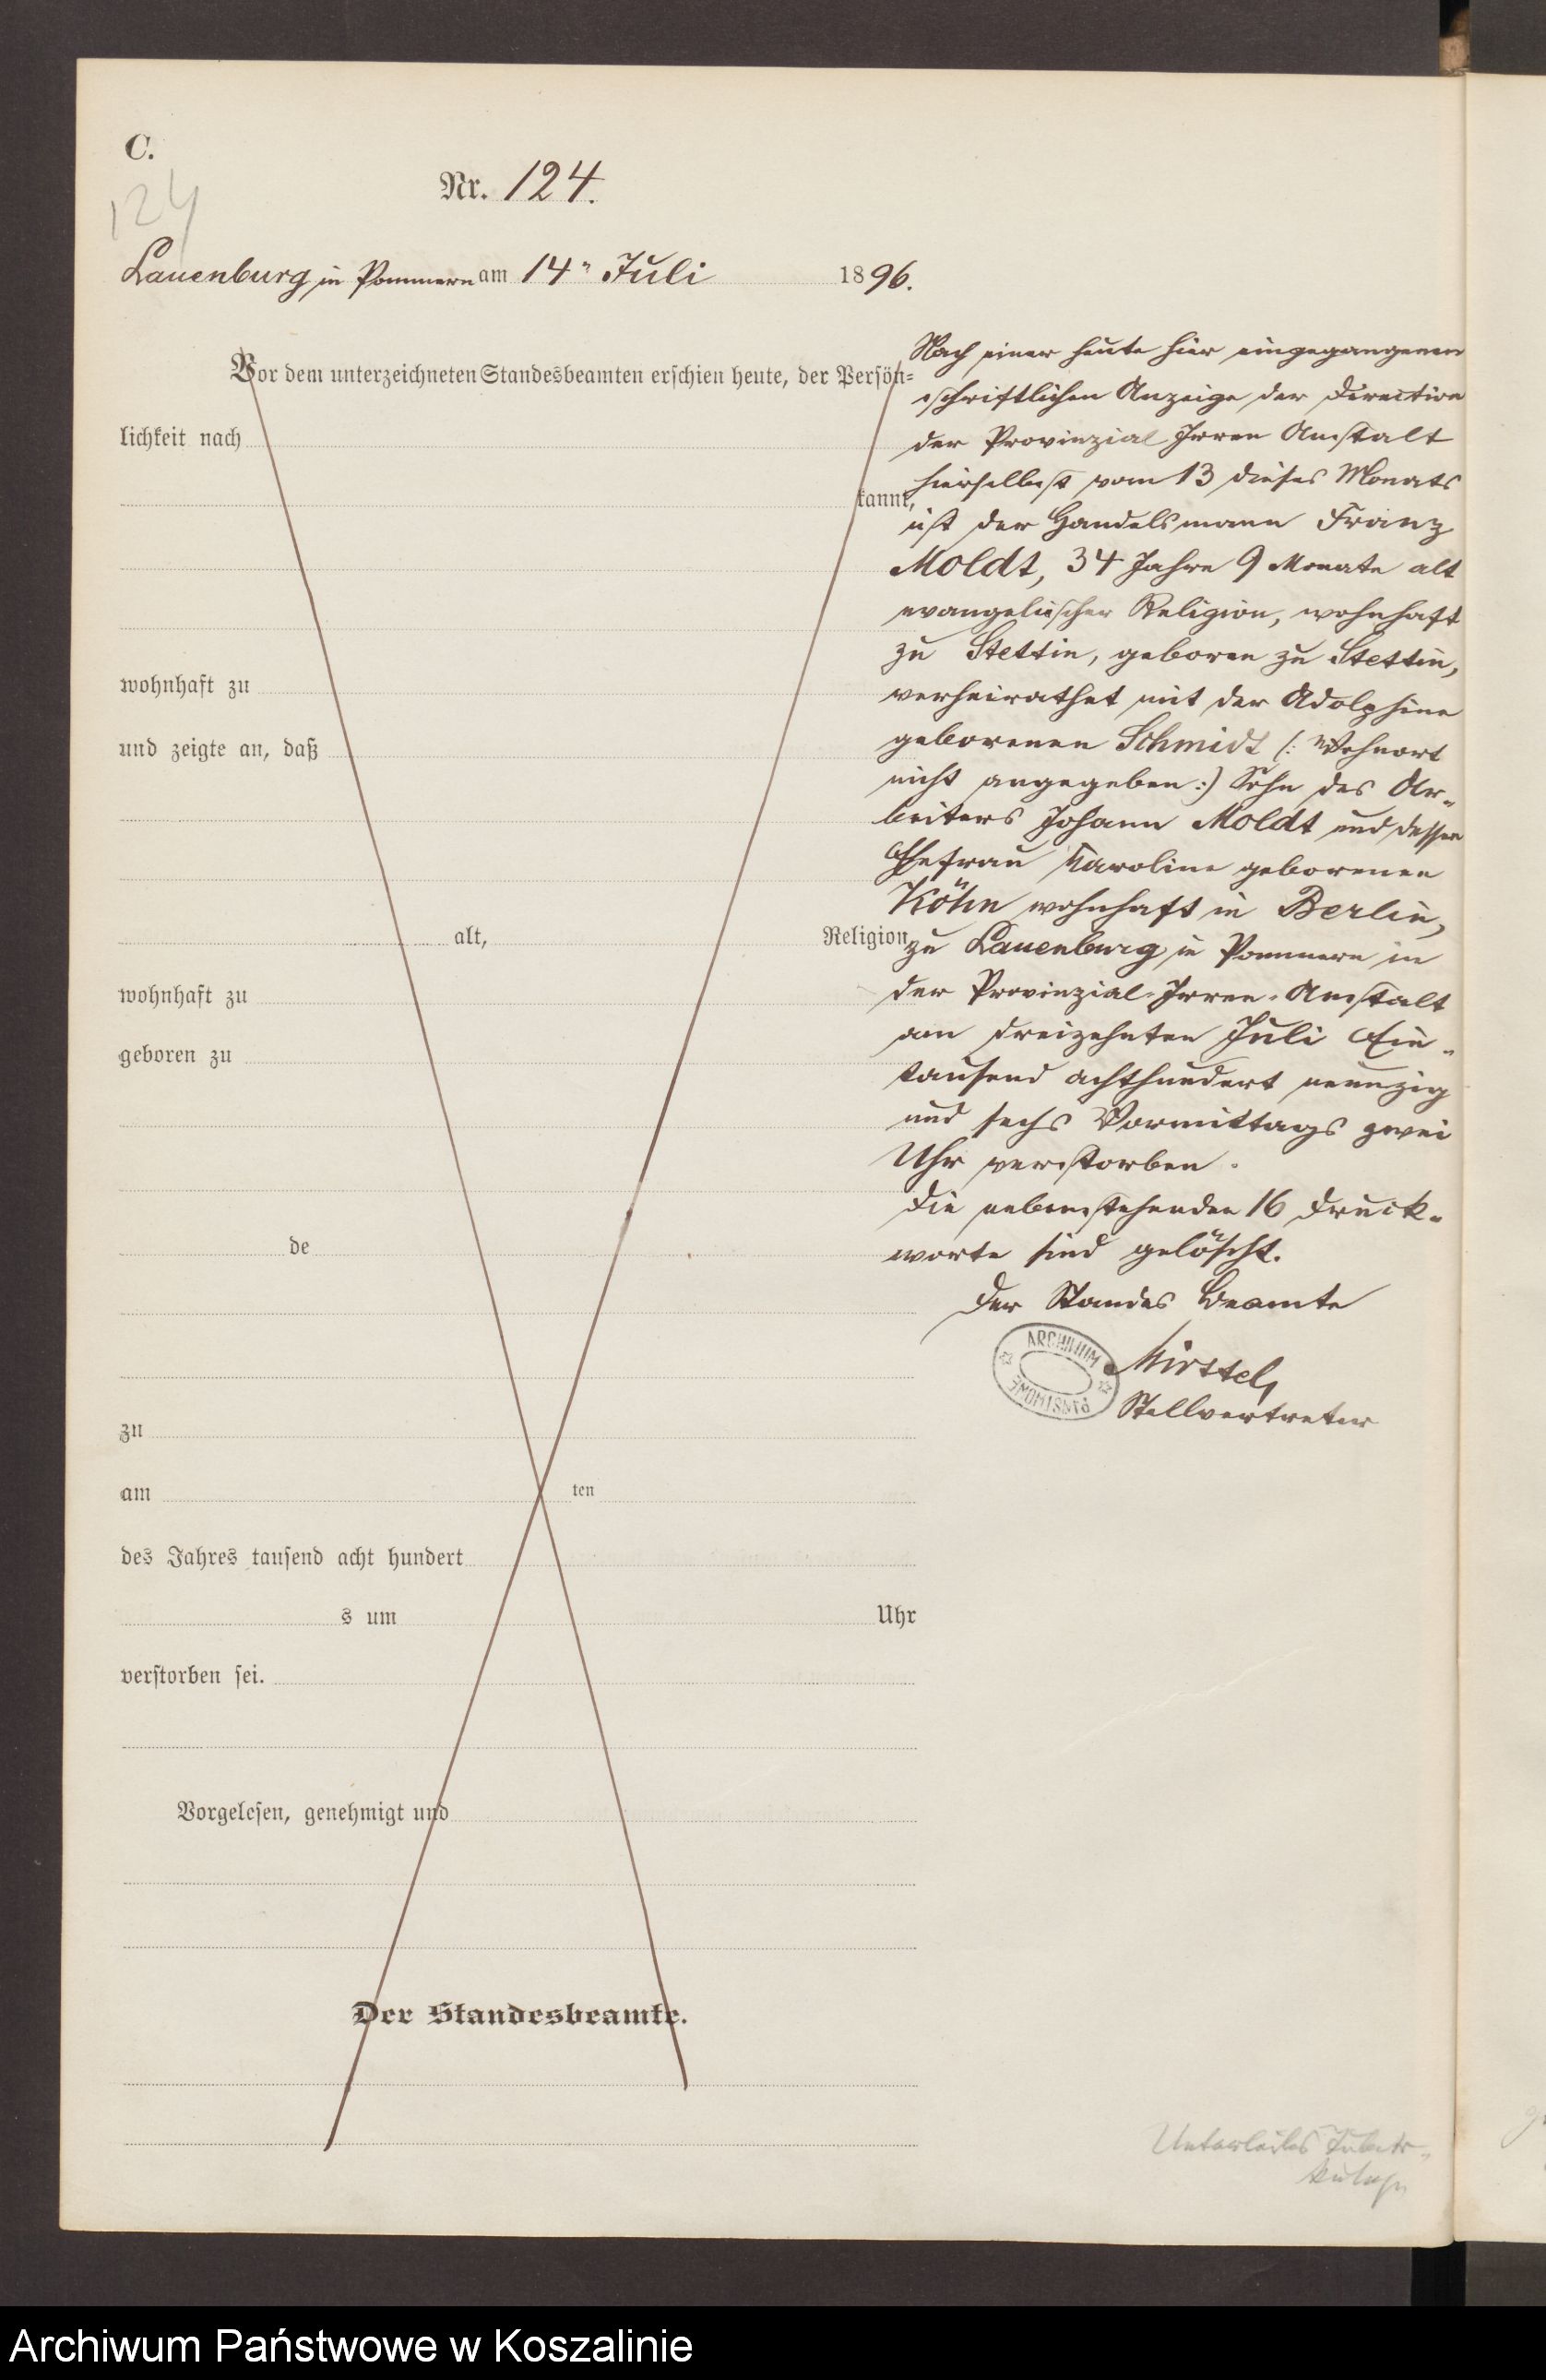 C.
124
Nr. 124.
Lauenburg in Pommern am 14n Juli 1896.
Vor dem unterzeichneten Standesbeamten erschien heute, der Persön=
lichkeit nach
kannt,
wohnhaft zu
und zeigte an, daß
alt, Religion
wohnhaft zu
geboren zu
de
zu
am ten
des Jahres tausend acht hundert
s um Uhr
verstorben sei.
Vorgelesen, genehmigt und
Der Standesbeamte.
Nach einer heute hier eingegangenen
schriftlichen Anzeige der Direction
der Provinzial Irren Anstalt
hierselbst vom 13 dieses Monats
ist der Handelsmann Franz
Moldt, 34 Jahre 9 Monate alt
evangelischer Religion, wohnhaft
zu Stettin, geboren zu Stettin,
verheirathet mit der Adolphine
geborenen Schmidt (: Wohnort
nicht angegeben :) Sohn des Ar-
beiters Johann Moldt und dessen
Ehefrau Karoline geborenen
Köhn wohnhaft in Berlin,
zu Lauenburg in Pommern in
der Provinzial-Irren-Anstalt
am dreizehnten Juli Ein-
tausend achthundert neunzig
und sechs Vormittags zwei
Uhr verstorben.
Die nebenstehenden 16 Druck-
worte sind gelöscht.
Der Standes Beamte
Stellvertreter
ARCHIWUM
PAŃSTWOWE
Unterleibs Tuber-
kulose
Archiwum Państwowe w Koszalinie